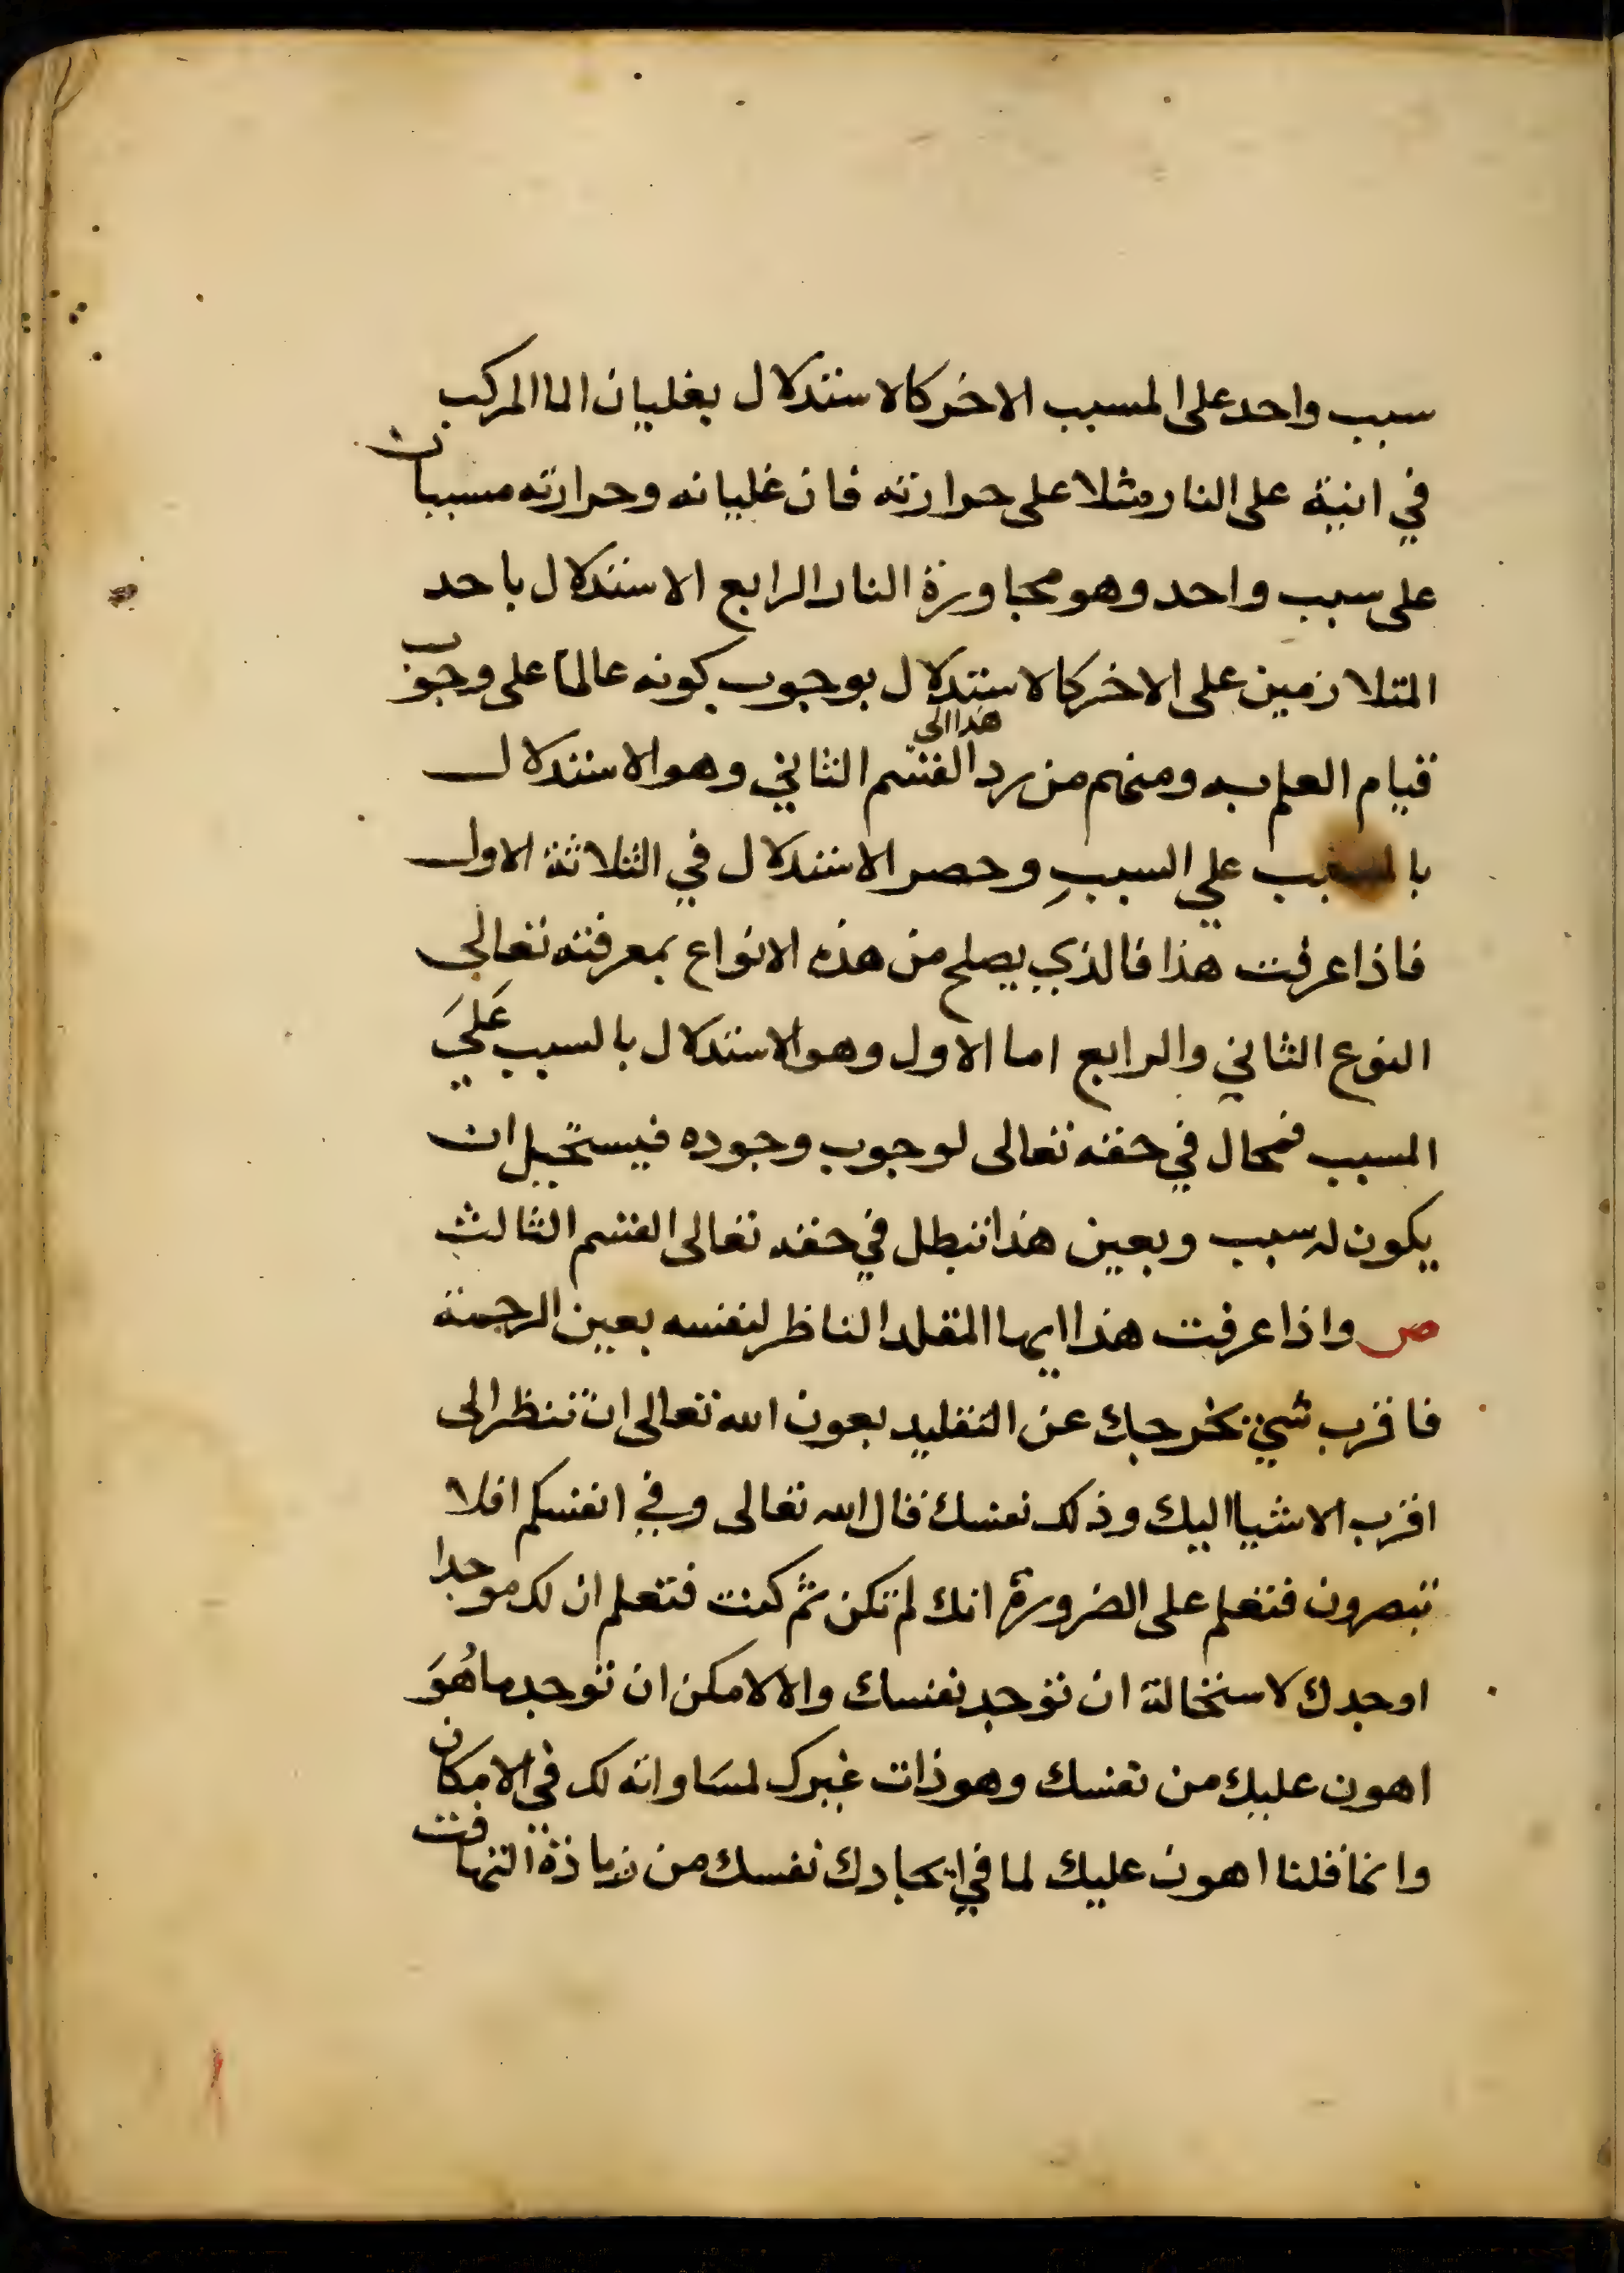 سبب واحد على المسبب الاخر كالاستدلال بغليان الما المركب
في انية على النار مثلا على حرارته فان غليانه وحرارته مسببان
على سبب واحد وهو مجاورة النار الرابع الاستدلال باحد
المتلازمين على الاخر كالاستدلال بوجوب كونه عالما على وجوب
قيام العلم به ومنهم من رد هذا الى القسم الثاني وهو الاستدلال
بالمسبب علي السبب وحصر الاستدلال في الثلاثة الاول
فاذا عرفت هذا فالذي يصلح من هذه الانواع بمعرفته تعالى
النوع الثاني والرابع اما الاول وهو الاستدلال بالسبب عَليَ
المسبب فمحال في حقه تعالى لوجوب وجوده فيستحيل ان
يكون له سبب وبعين هذا تبطل في حقه تعالى القسم الثالث
ص واذا عرفت هذا ايها المقلد الناظر لنفسه بعين الرحمة
فاقرب شيء يخرجك عن التقليد بعون الله تعالى ان تنظر الى
اقرب الاشيا اليك وذلك نفسك قال الله تعالى وفي انفسكم افلا
تبصرون فتعلم على الضرورة انك لم تكن ثم كنت فتعلم ان لك موجدا
اوجدك لاستحالة ان توجد نفسك والا لامكن ان توجد ما هُوَ
اهون عليك من نفسك وهو ذات غيرك لمساواته لك في الامكان
وانما قلنا اهون عليك لما في ايجادك نفسك من زيادة التهافت